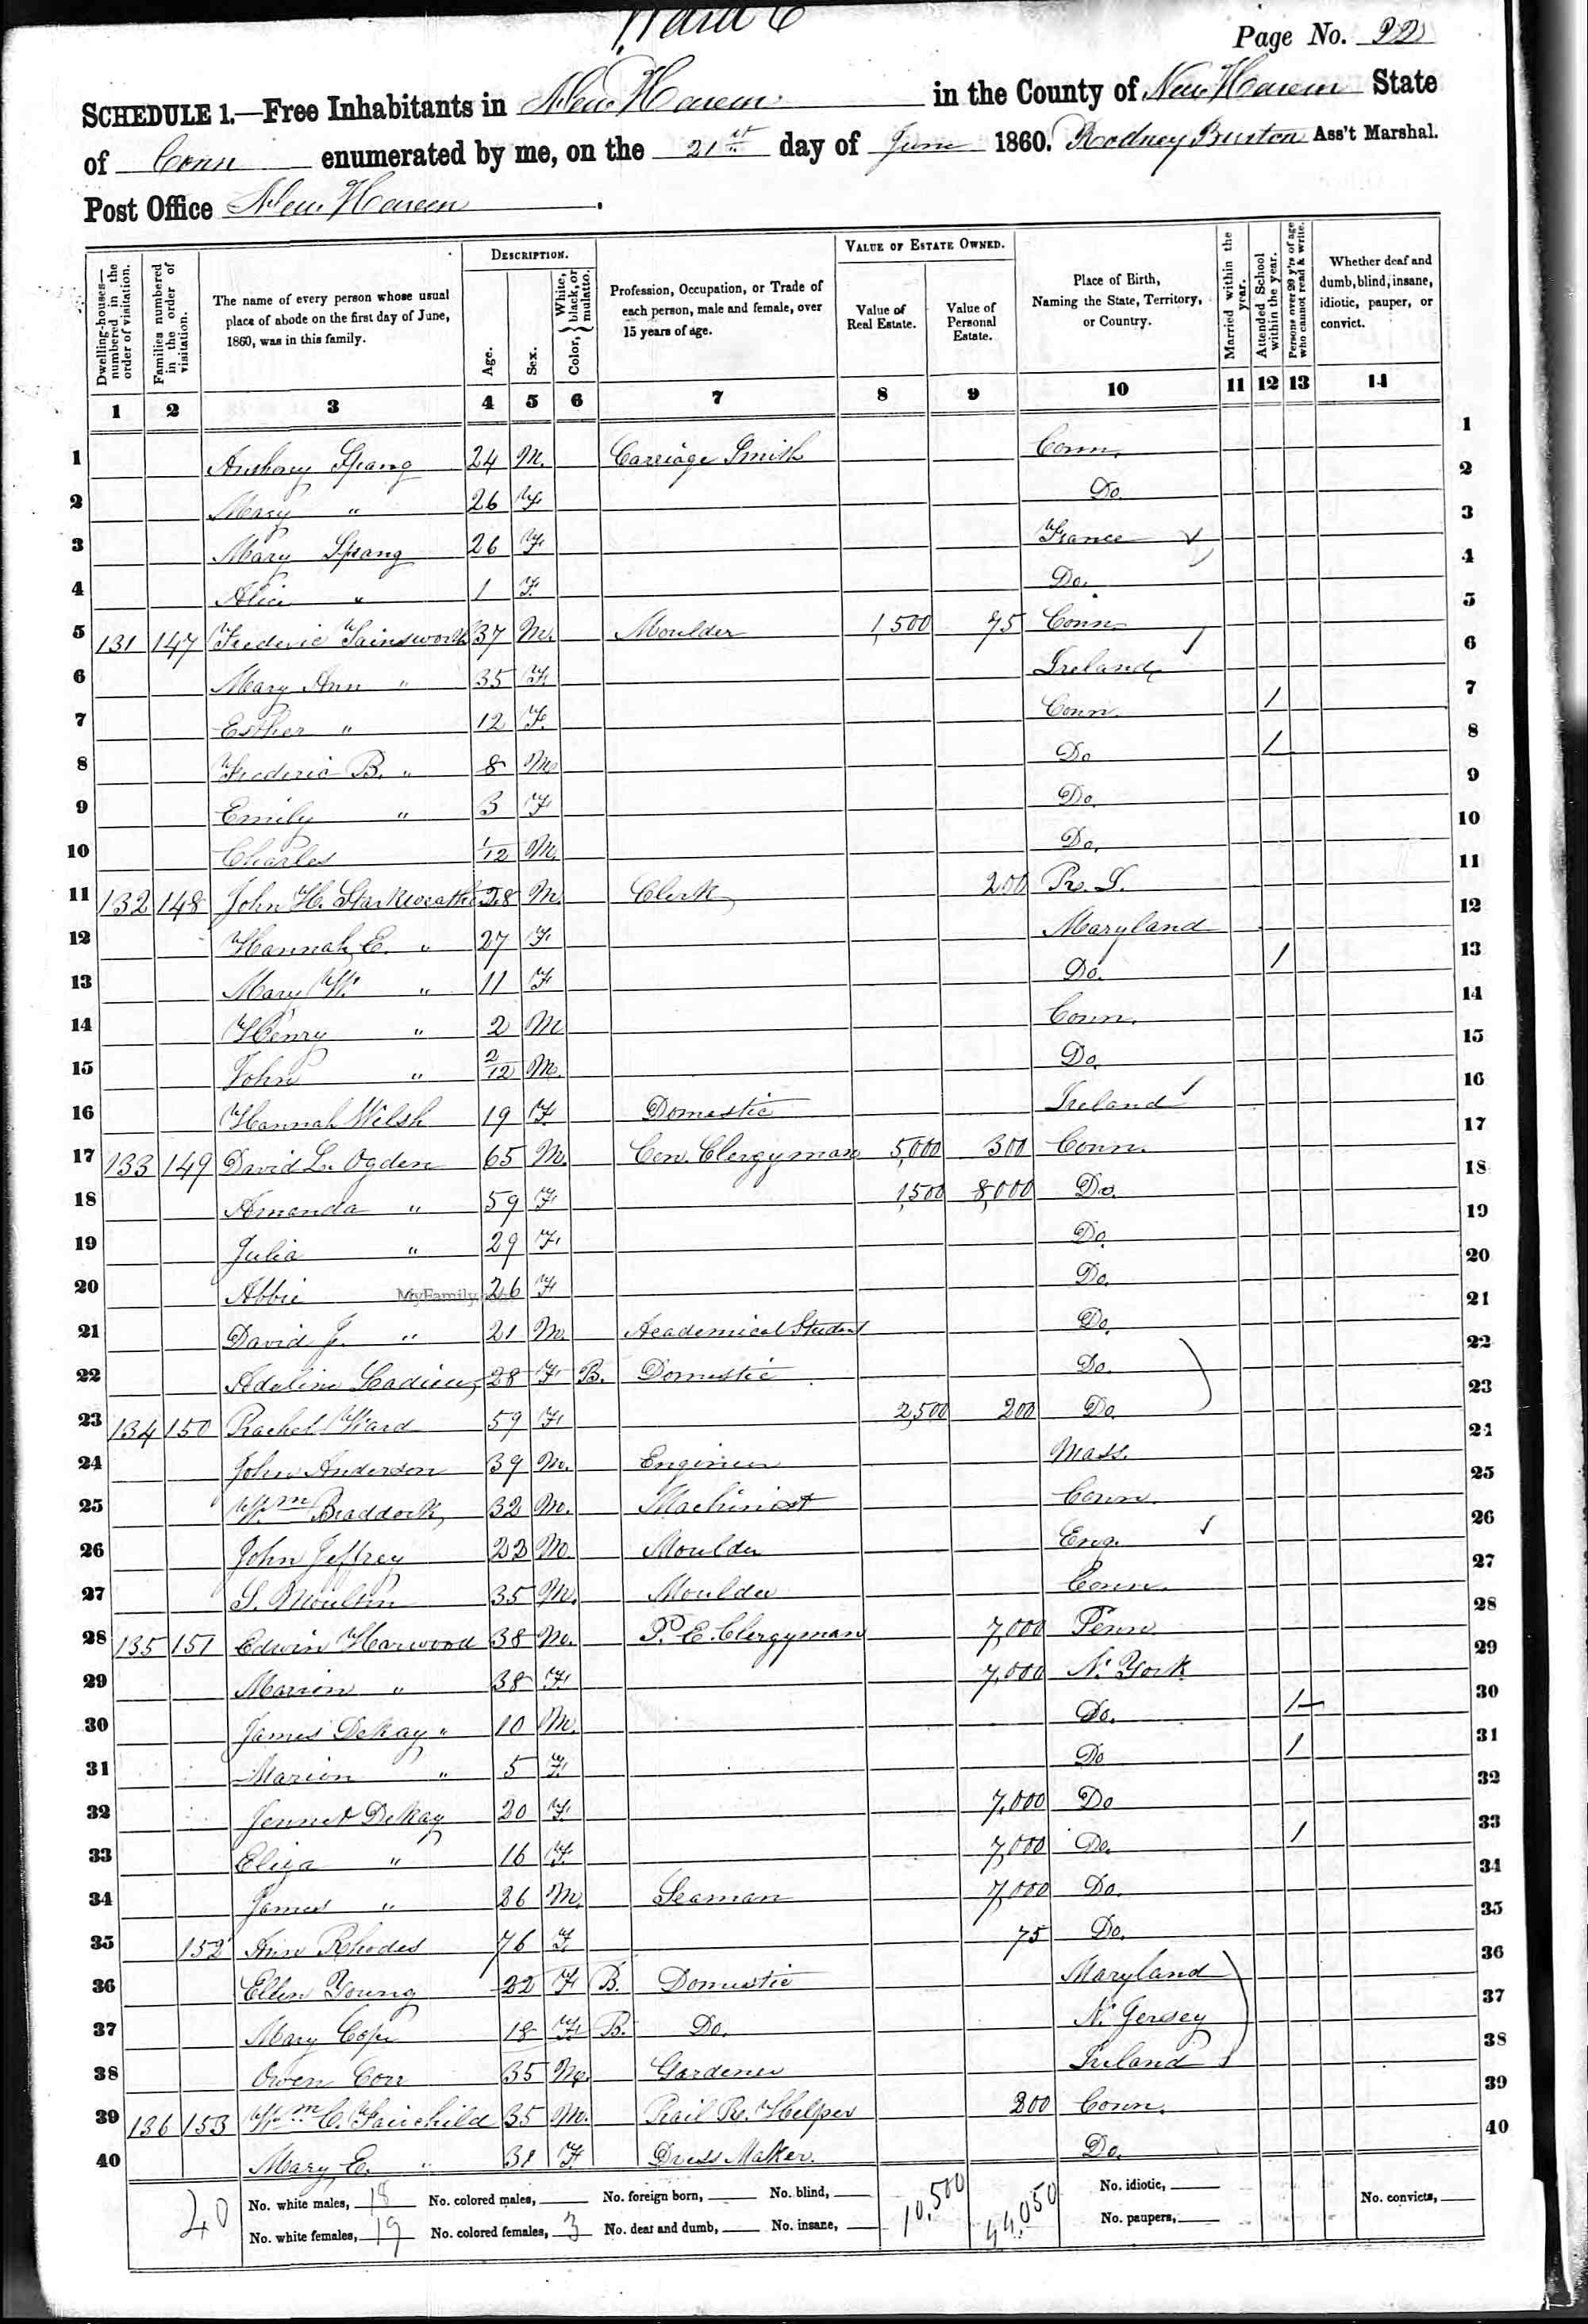 Ward 6
Page No. 22
SCHEDULE 1.—Free Inhabitants in New Haven in the County of New Haven State
of Conn enumerated by me, on the 21st day of June 1860. Rodney Burton Ass't Marshal.
Post Office New Haven.
Dwelling-houses—numbered in the order of visitation.
Families numbered in the order of visitation.
The name of every person whose usual place of abode on the first day of June, 1860, was in this family.
DESCRIPTION.
Age.
Sex.
Color, { White, black, or mulatto.
Profession, Occupation, or Trade of each person, male and female, over 15 years of age.
VALUE OF ESTATE OWNED.
Value of Real Estate.
Value of Personal Estate.
Place of Birth, Naming the State, Territory, or Country.
Married within the year.
Attended School within the year.
Persons over 20 y'rs of age who cannot read & write.
Whether deaf and dumb, blind, insane, idiotic, pauper, or convict.
1 2 3 4 5 6 7 8 9 10 11 12 13 14
1 Anthony Spang 24 M. Carriage Smith Conn. 1
2 Mary " 26 F Do. 2
3 Mary Spang 26 F. France 3
4 Alice " 1 F. Do. 4
5 131 147 Frederic Fainsworth 37 M. Moulder 1,500 75 Conn. 5
6 Mary Ann " 35 F. Ireland 6
7 Esther " 12 F. Conn. 1 7
8 Frederic B. " 8 M Do 1 8
9 Emily " 3 F Do. 9
10 Charles 1/12 M. Do. 10
11 132 148 John H. Starkweather 28 M. Clerk 200 R. I. 11
12 Hannah E. " 27 F. Maryland 12
13 Mary W. " 11 F Do. 1 13
14 Henry " 2 M Conn. 14
15 John " 2/12 M. Do. 15
16 Hannah Welsh 19 F. Domestic Ireland 16
17 133 149 David L. Ogden 65 M. Con. Clergyman 5,000 300 Conn. 17
18 Amanda " 59 F. 1,500 8,000 Do. 18
19 Julia " 29 F. Do. 19
20 Abbie MyFamily.com 26 F Do. 20
21 David J. " 21 M. Academical Student Do. 21
22 Adeline 28 F. B. Domestic Do. 22
23 134 150 Rachel Ward 59 F. 2,500 200 Do. 23
24 John Anderson 39 M. Engineer Mass. 24
25 Wm Braddock 32 M. Machinist Conn. 25
26 John Jeffrey 22 M. Moulder Eng. 26
27 S. Moulton 35 M. Moulder Conn. 27
28 135 151 Edwin Harwood 38 M. P. E. Clergyman 7,000 Penn 28
29 Marion " 38 F. 7,000 N. York 29
30 James DeKay " 10 M. Do. 1 30
31 Marion " 5 F. Do 1 31
32 Jennet DeKay 20 F. 7,000 Do 32
33 Eliza " 16 F. 7,000 Do. 1 33
34 James " 26 M. Seaman 7,000 Do. 34
35 152 Ann Rhodes 76 F. 75 Do. 35
36 Ellen Young 22 F. B. Domestic Maryland 36
37 Mary Cope 18 F. B. Do. N. Jersey 37
38 Owen Corr 35 M. Gardener Ireland 38
39 136 153 Wm C. Fairchild 35 M. Rail R. Helper 200 Conn. 39
40 Mary E. " 31 F. Dress Maker. Do. 40
40 No. white males, 18 No. colored males, No. foreign born, No. blind, 10,500 44,050 No. idiotic, No. convicts,
No. white females, 19 No. colored females, 3 No. deaf and dumb, No. insane, No. paupers,